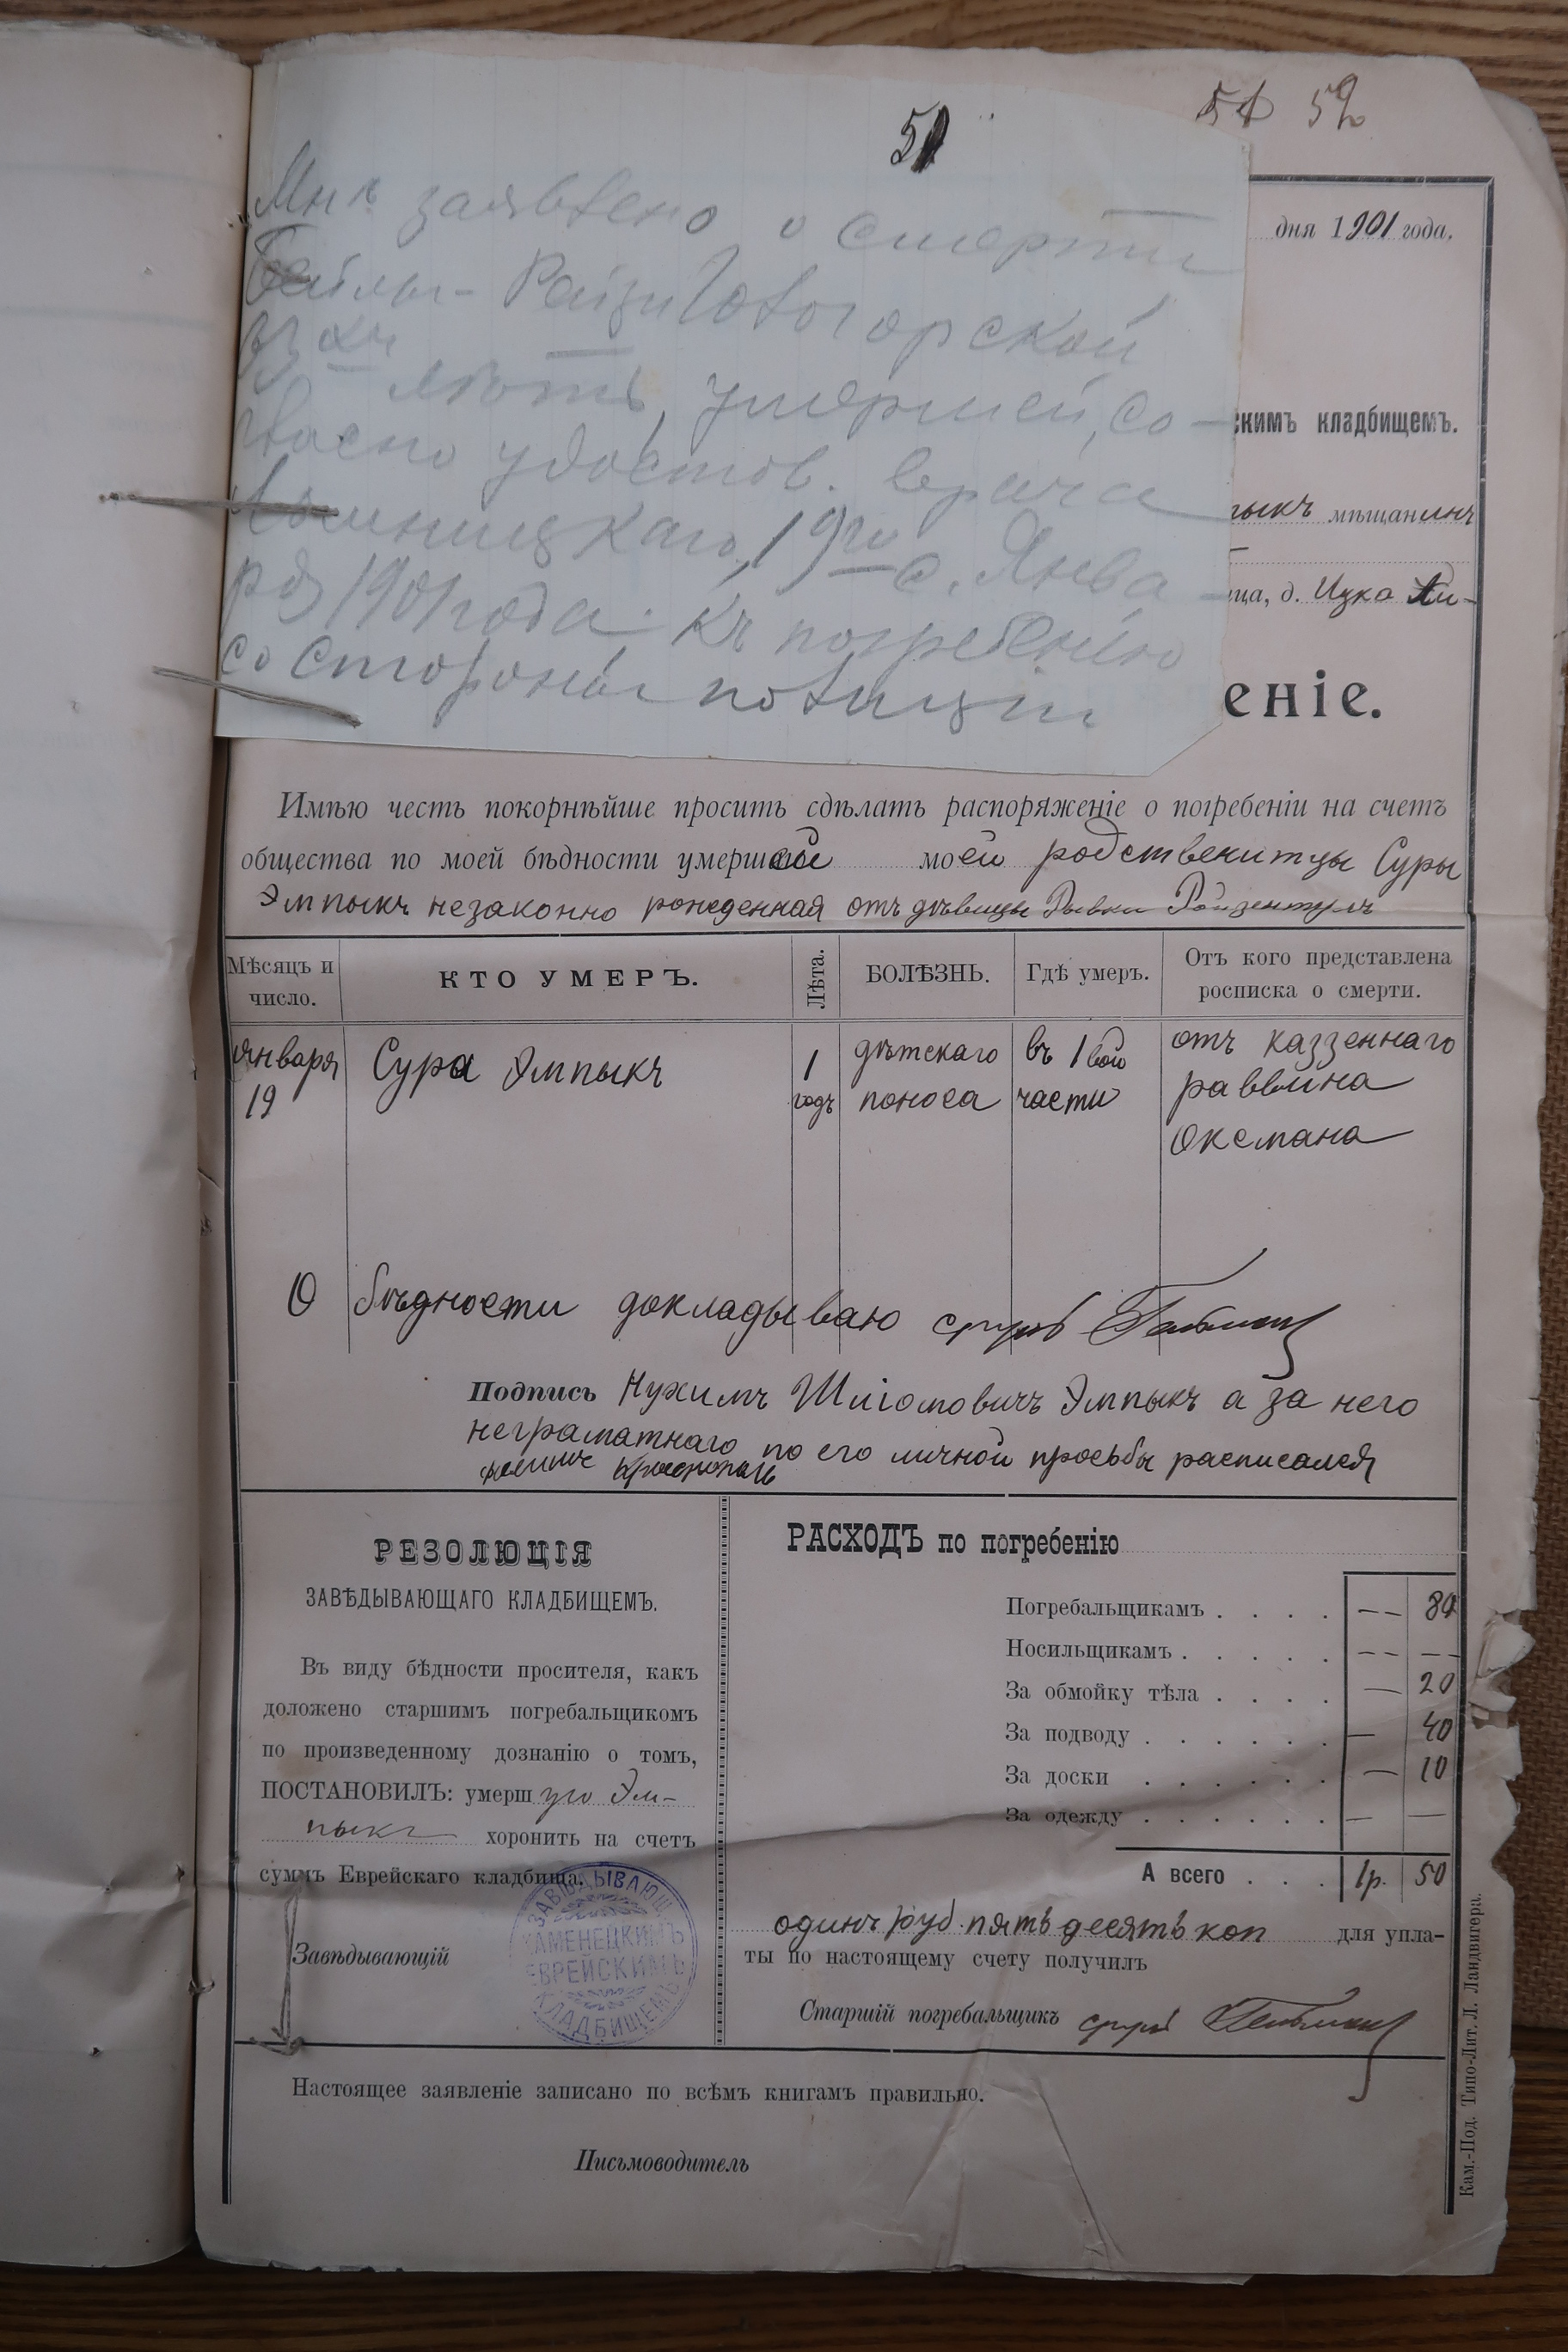 51 52
51
дня 1901 года.
Мнѣ заявлено о смерти
Бейлы-Рейзи Гологорской
лѣтъ, умершей, со-
гласно удостов. врача
19го с. Янва-
ря 1901 года. Къ погребенію
со стороны полиціи
скимъ кладбищемъ.
пыкъ мѣщанинъ
ца, д. Ицко
еніе.
Имѣю честь покорнѣйше просить сдѣлать распоряженіе о погребеніи на счетъ
общества по моей бѣдности умершей моей родственницы Суры
Эмпыкъ незаконно рожденная отъ дѣвицы Рывки Ройзентулъ
Мѣсяцъ и число.
КТО УМЕРЪ.
Лѣта.
БОЛѢЗНЬ.
Гдѣ умеръ.
Отъ кого представлена росписка о смерти.
января Сура Эмпыкъ 1 дѣтскаго въ 1вой отъ каззеннаго
19 годъ поноса части раввина
Оксмана
О бѣдности докладываю
Подпись Нухимъ Шліомовичъ Эмпыкъ а за него
неграматнаго по его личной просьбы расписался
РЕЗОЛЮЦІЯ
ЗАВѢДЫВАЮЩАГО КЛАДБИЩЕМЪ.
Въ виду бѣдности просителя, какъ
доложено старшимъ погребальщикомъ
по произведенному дознанію о томъ,
ПОСТАНОВИЛЪ: умершую Эм-
пыкъ хоронить на счетъ
суммъ Еврейскаго кладбища.
Завѣдывающій
ЗАВѢДЫВАЮЩ.
КАМЕНЕЦКИМЪ
ЕВРЕЙСКИМЪ
КЛАДБИЩЕМЪ
РАСХОДЪ по погребенію
Погребальщикамъ . . . . — — 80
Носильщикамъ . . . . . — — — —
За обмойку тѣла . . . . — 20
За подводу . . . . . . — 40
За доски . . . . . . — 10
За одежду . . . . . . — —
А всего . . . 1р. 50
одинъ руб. пять десять коп для упла-
ты по настоящему счету получилъ
Старшій погребальщикъ
Настоящее заявленіе записано по всѣмъ книгамъ правильно.
Письмоводитель
Кам.-Под. Типо-Лит. Л. Ландвигера.